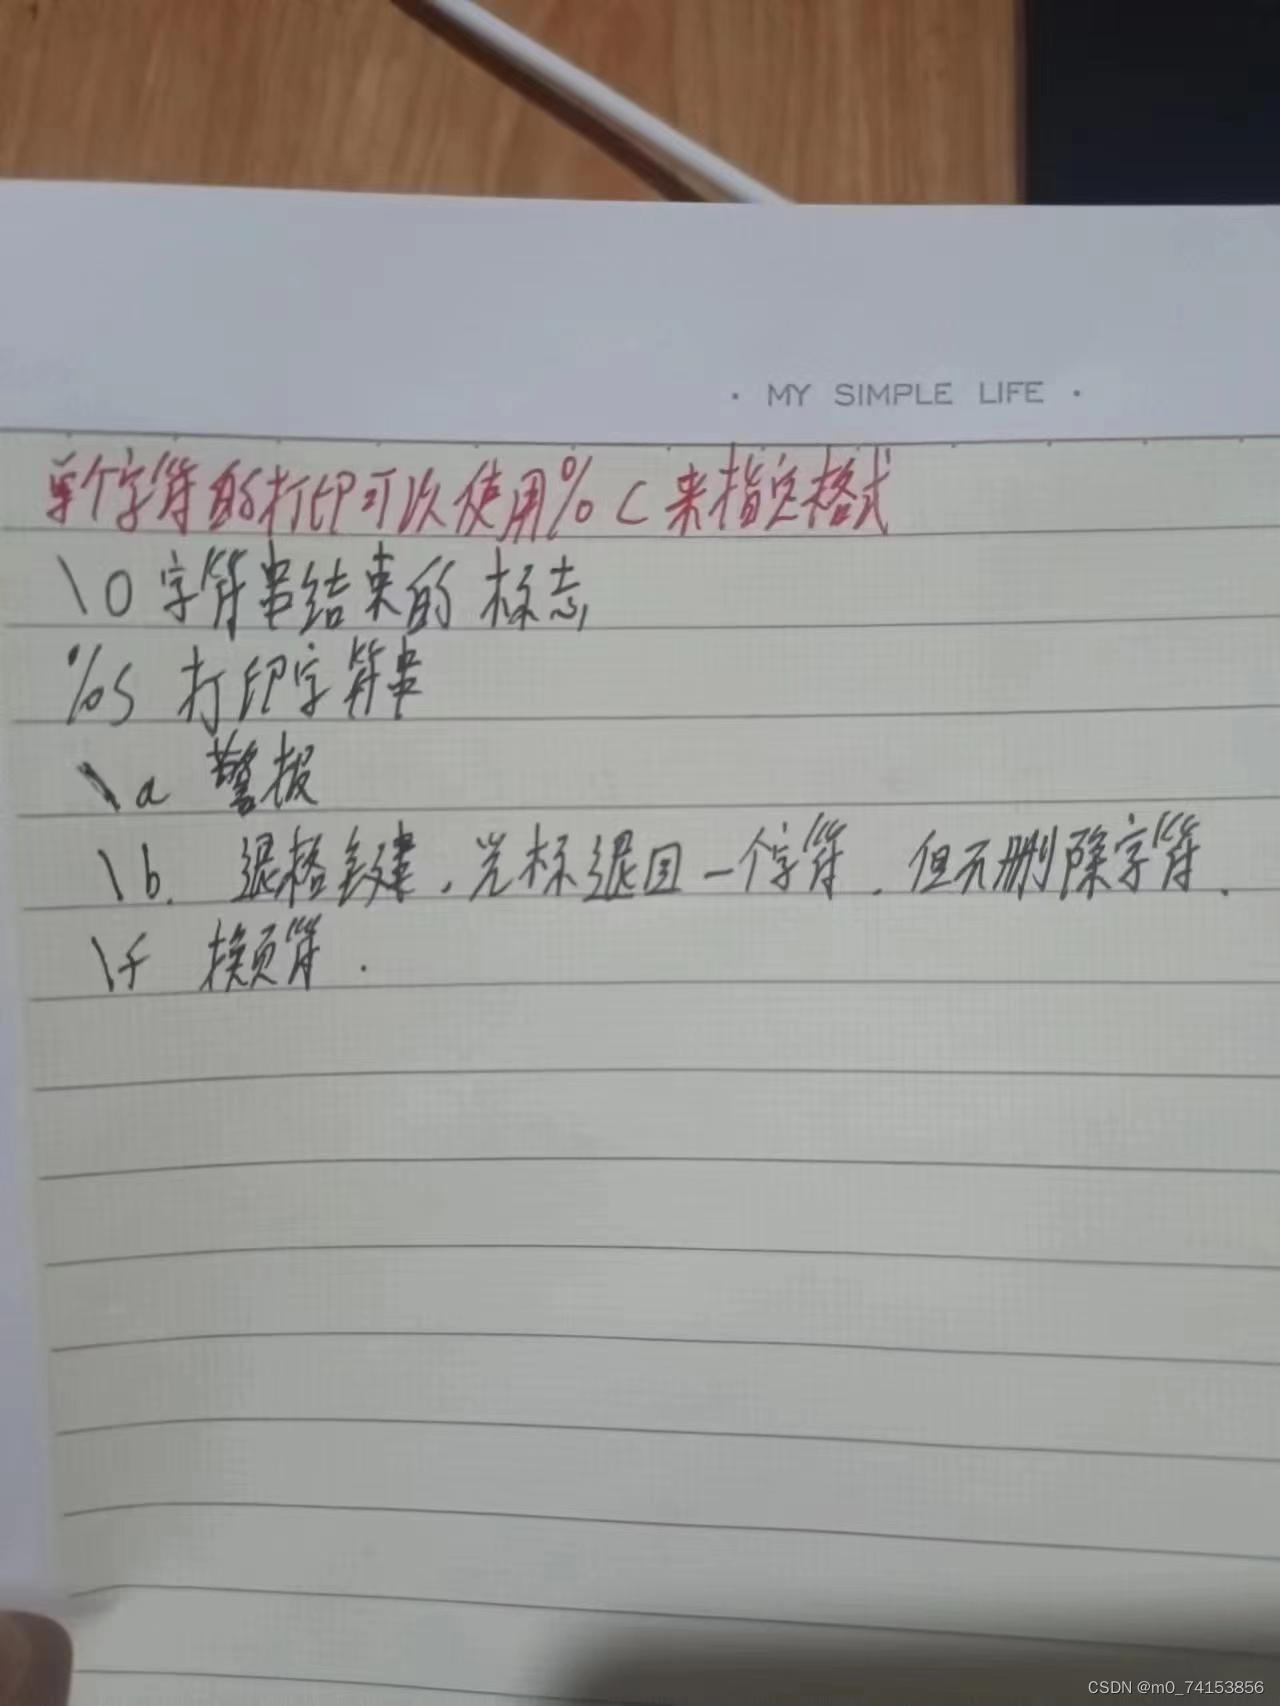 · MY SIMPLE LIFE ·
单个字符的打印可以使用%c来指定格式
\0 字符串结束的标志
%s 打印字符串
\a 警报
\b. 退格键,光标退回一个字符,但不删除字符.
\f 换页符.
CSDN @m0_74153856